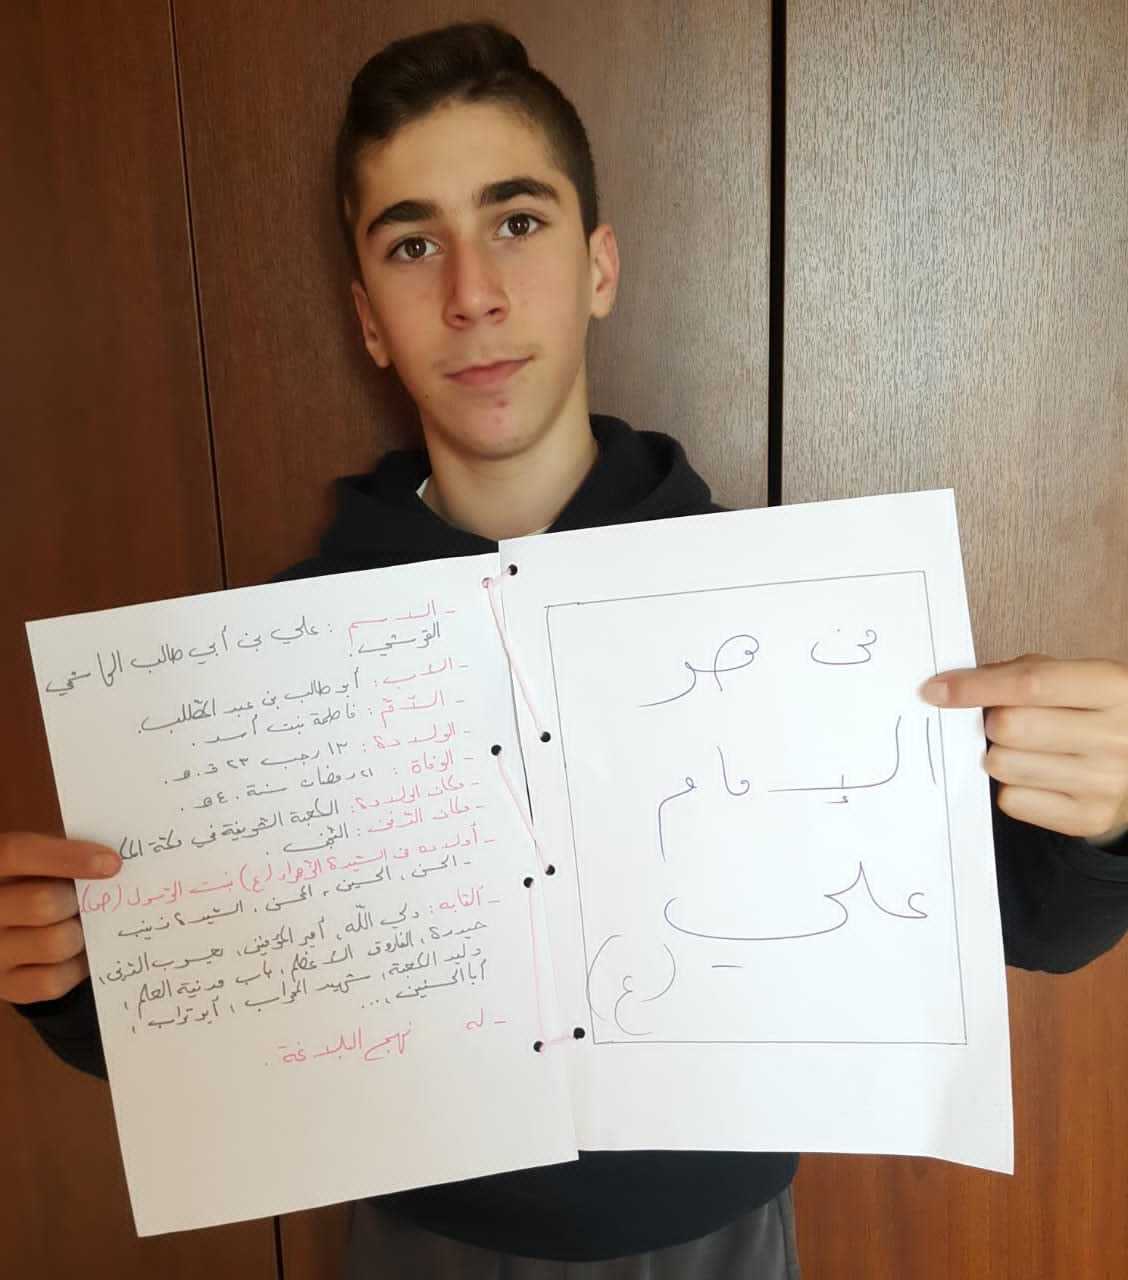 من هو
الإمام
علي
(ع)
- الاسم : علي بن أبي طالب الهاشمي
القرشي.
- الأب : أبو طالب بن عبد المطلب.
- الأم : فاطمة بنت أسد .
- الولادة : ١٣ رجب ٢٣ ق.هـ .
- الوفاة : ٢١ رمضان سنة ٤٠ هـ .
- مكان الولادة : الكعبة الشريفة في مكة
- مكان الدفن : النجف .
- أولاده من السيدة الزهراء (ع) بنت الرسول (ص)
- الحسن ، الحسين ، المحسن ، السيدة زينب
- ألقابه : ولي الله، أمير المؤمنين، يعسوب الدين،
حيدرة، الفاروق الأعظم، باب مدينة العلم ،
وليد الكعبة، شهيد المحراب ، أبو تراب ،
أبا الحسنين ،...
- له نهج البلاغة .